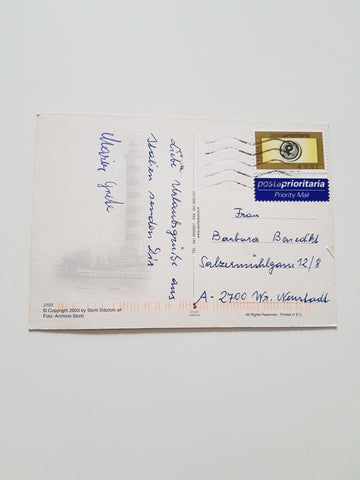 Liebe Urlaubsgrüße aus
Italien senden Dir
postaprioritaria
postaprioritaria
Priority Mail
Frau
Barbara Benedikt
Salzermühlgasse 12/8
A-2700 Wr. Neustadt
J101
© Copyright 2003 by Storti Edizioni srl
Foto: Archivio Storti
All Rights Reserved - Printed in E.U.